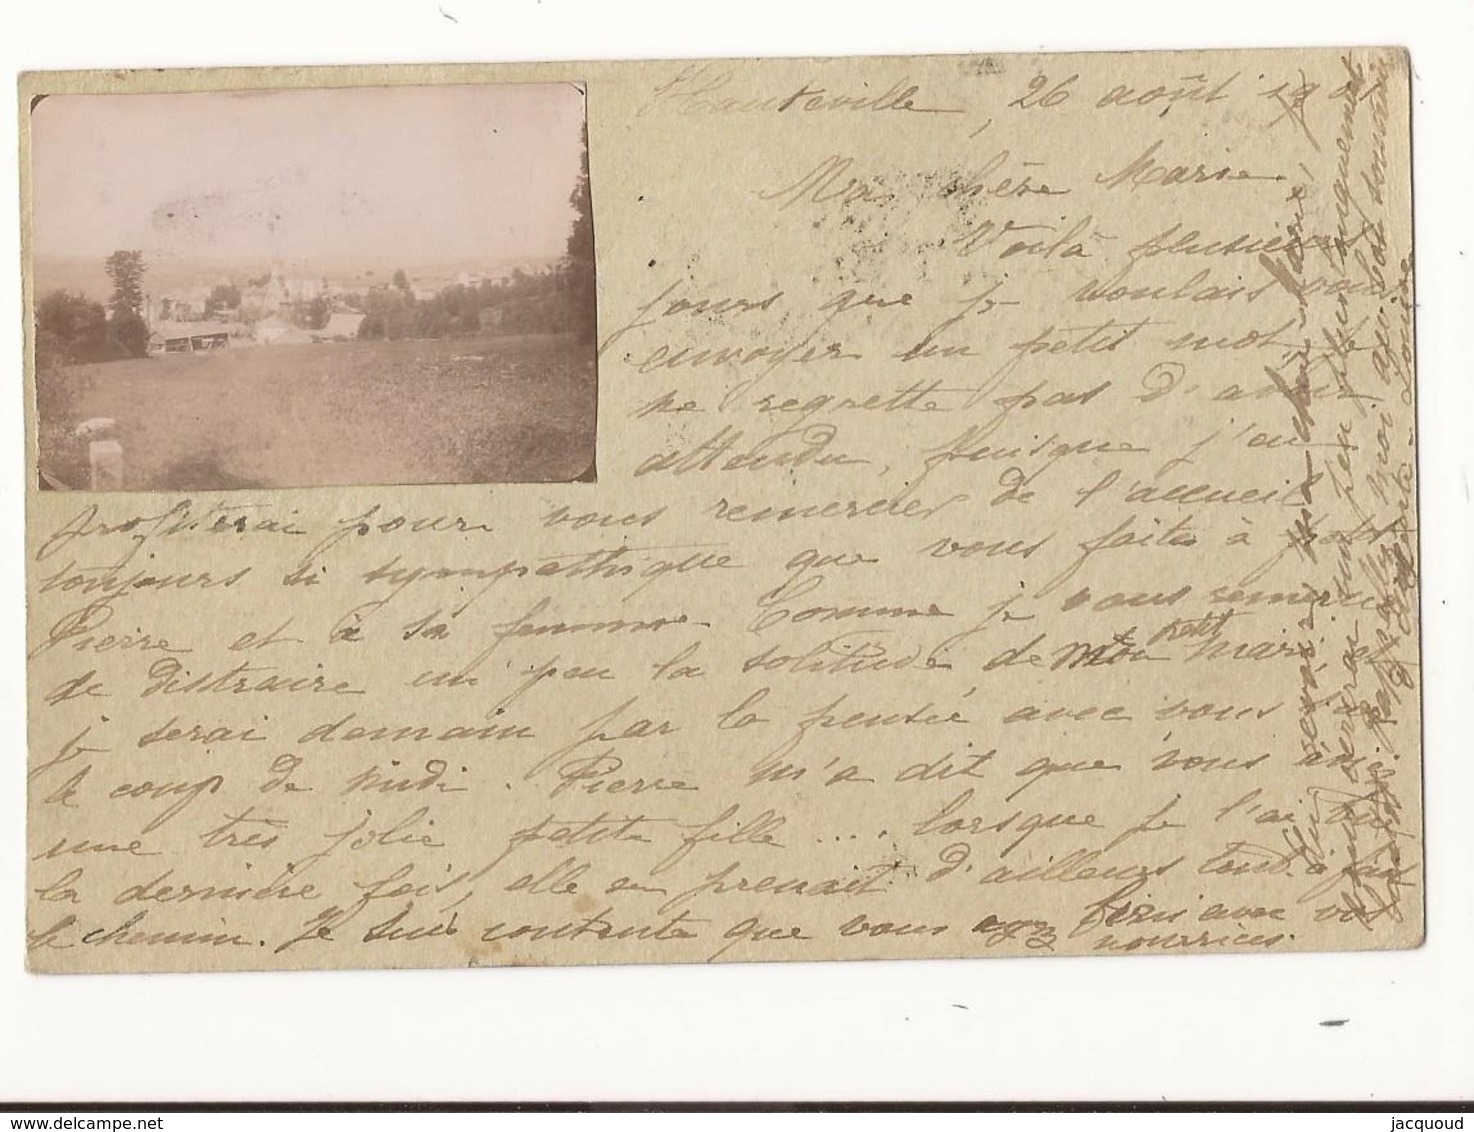 Hauteville, 26 août
Ma chère Marie
Voilà plusieurs
jours que je voulais vous
envoyer un petit mot, je
ne regrette pas d'avoir
attendu, puisque j'en
profiterai pour vous remercier de l'accueil
toujours si sympathique que vous faites à
Pierre et à sa femme. Comme je vous remercie
de distraire un peu la solitude de mon petit mari, et
je serai demain par la pensée avec vous
le coup de midi. Pierre m'a dit que vous aviez
une très jolie petite fille .... lorsque je l'ai vue
la dernière fois, elle en prenait d'ailleurs tout à fait
le chemin. Je suis contente que vous ayez fini avec vos
nourrices.
chère Marie,
vous serrai un peu plus longuement
moi au bon souvenir
Louise
jacquoud